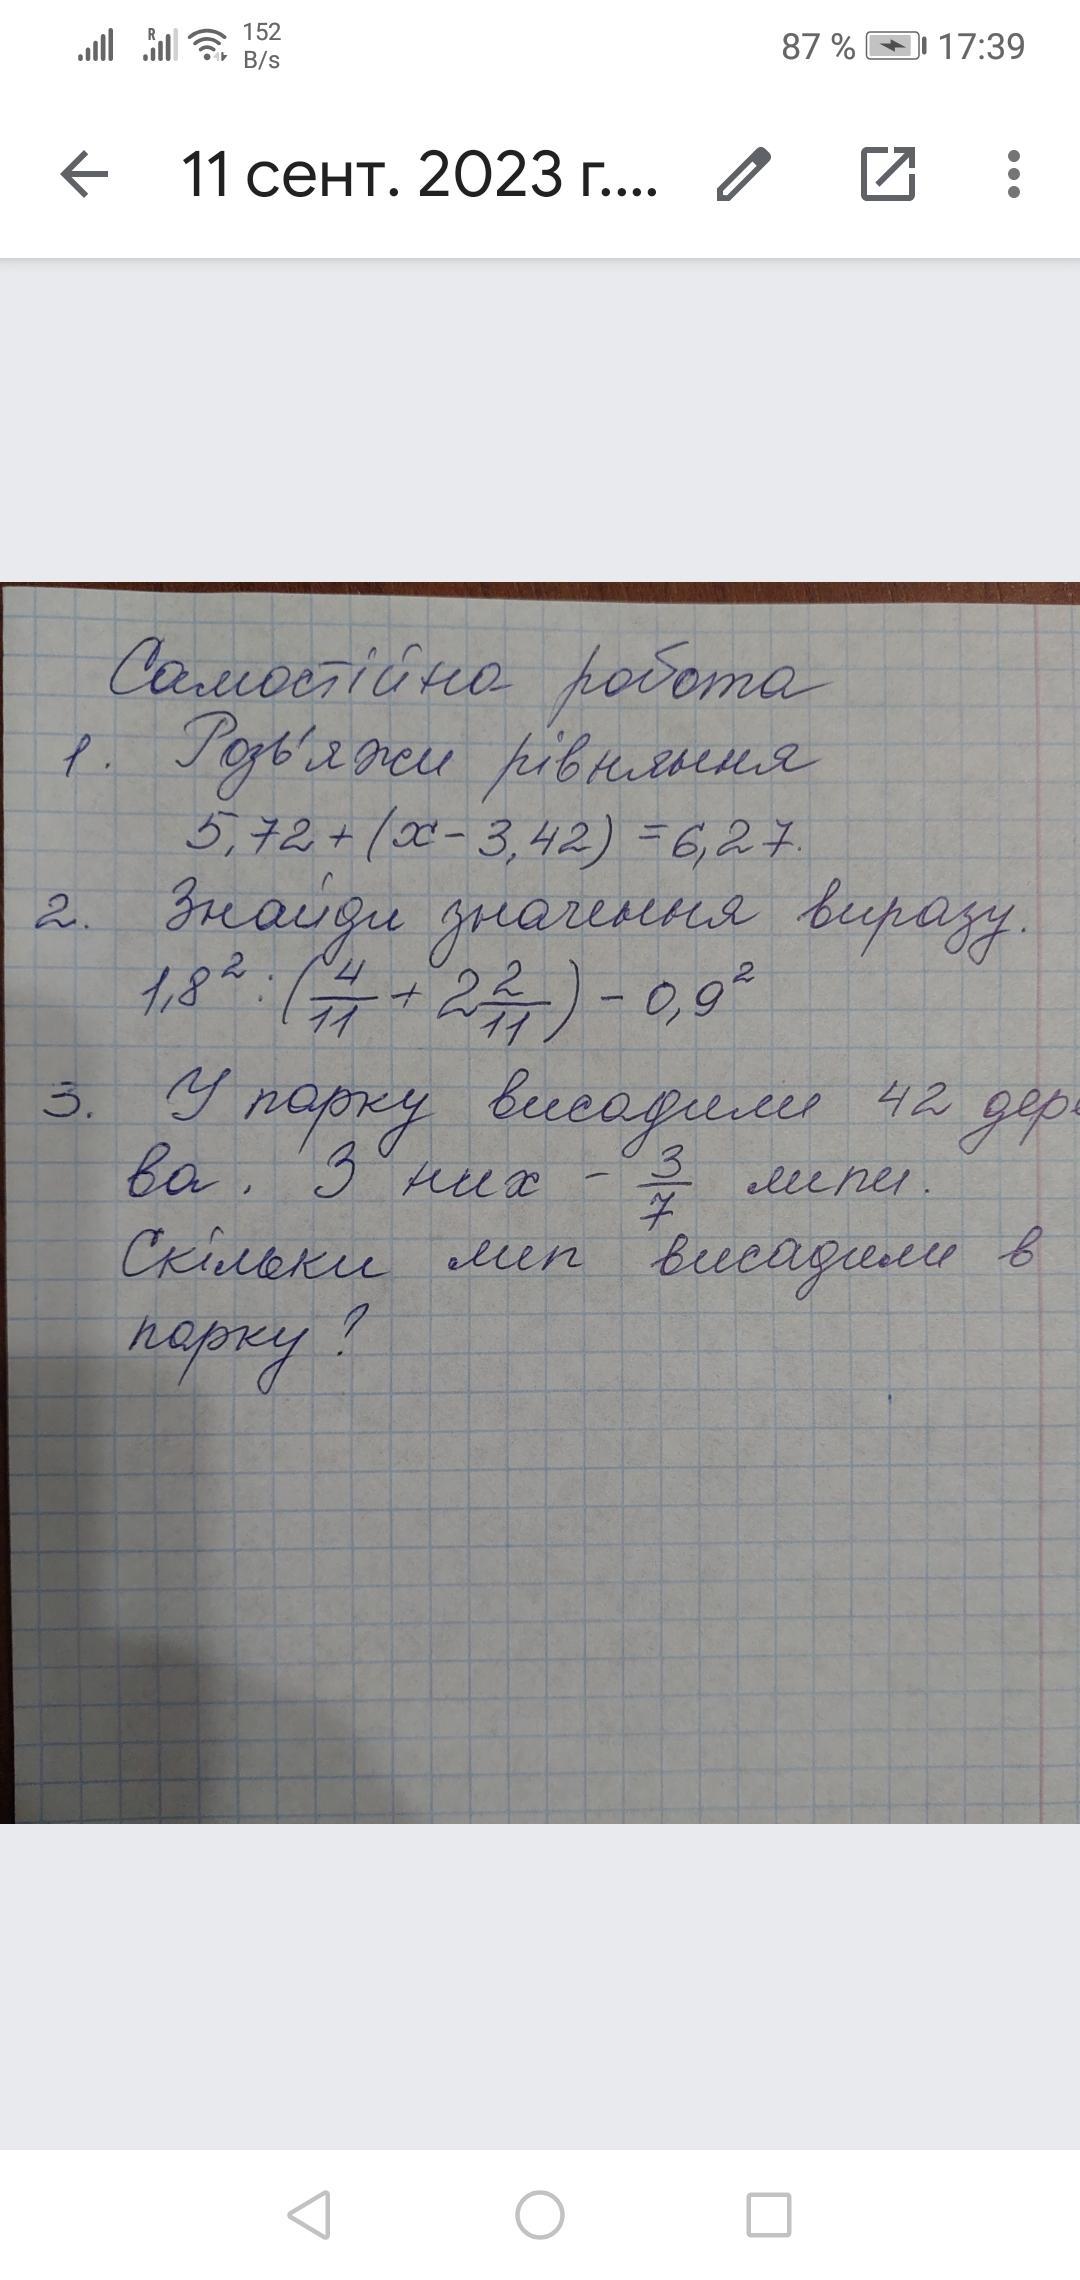 152
B/s
87 %
17:39
11 сент. 2023 г....
Самостійна робота
1. Розв'яжи рівняння
5,72 + (x - 3,42) = 6,27.
2. Знайди значення виразу.
1,8² : (4/11 + 2 2/11) - 0,9²
3. У парку висадили 42 дере
ва. З них - 3/7 липи.
Скільки лип висадили в
парку?